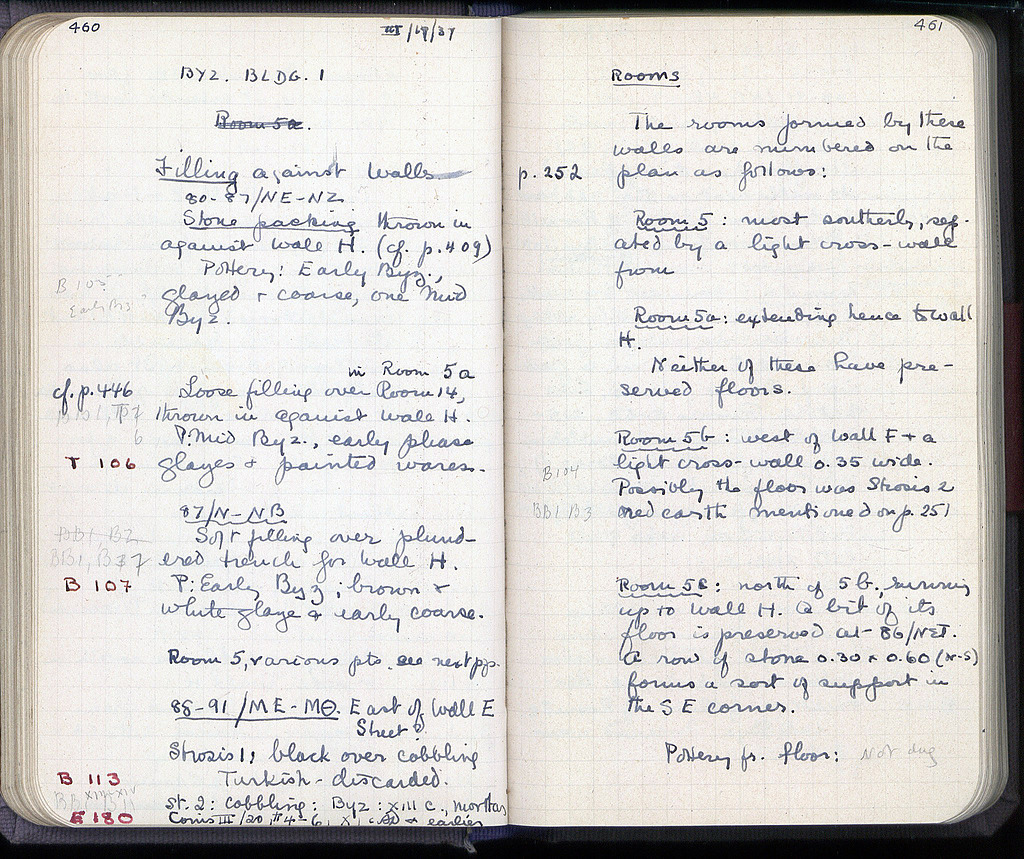 460
III/19/37
BYZ. BLDG. 1
Room 5a.
Filling against walls
80-87/NE-NZ
Stone packing thrown in
against wall H. (cf. p. 409)
Pottery: Early Byz.,
glazed + coarse, one Mid
Byz.
B 105
Early Byz
in Room 5a
cf. p. 446 Loose filling over Room 14,
thrown in against wall H.
P: Mid Byz., early phase
T 106 glazes + painted wares.
87/N-NB
Soft filling over plund-
ered trench for wall H.
B 107 P: Early Byz; brown +
white glaze + early coarse.
Room 5, various pts. see next pp.
88-91/ME-MΘ. East of Wall E
Street?
Strosis 1, black over cobbling
B 113 Turkish - discarded.
XIII-XIV
St. 2: cobbling: Byz: XIII c.,
E 180 Coins III/20, #4-6, & earlier
461
Rooms
The rooms formed by these
walls are numbered on the
p. 252 plan as follows:
Room 5: most southerly, seg-
ated by a light cross-wall
from
Room 5a: extending hence to wall
H.
Neither of these have pre-
served floors.
Room 5b: west of wall F + a
B104 light cross-wall 0.35 wide.
Possibly the floor was Strosis 2
BB1 B3 red earth mentioned on p. 251
Room 5c: north of 5b, running
up to wall H. A bit of its
floor is preserved at 86/NET.
A row of stone 0.30 x 0.60 (N-S)
forms a sort of support in
the SE corner.
Pottery fr. floor: Not dug